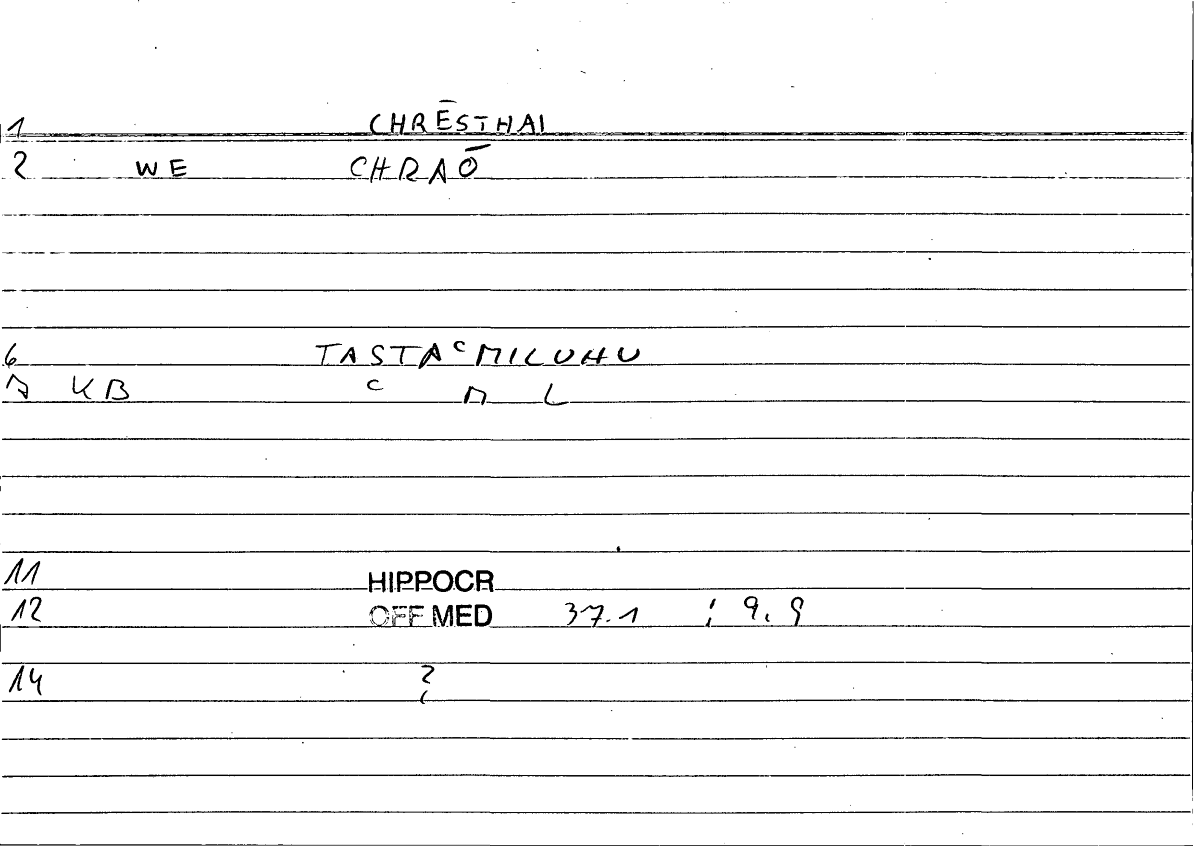 1 CHRĒSTHAI
2 WE CHRAŌ
6 TASTAᶜMILUHU
7 KB ᶜ M L
11 HIPPOCR
12 OFF MED 37.1 ; 9, 9
14 ?